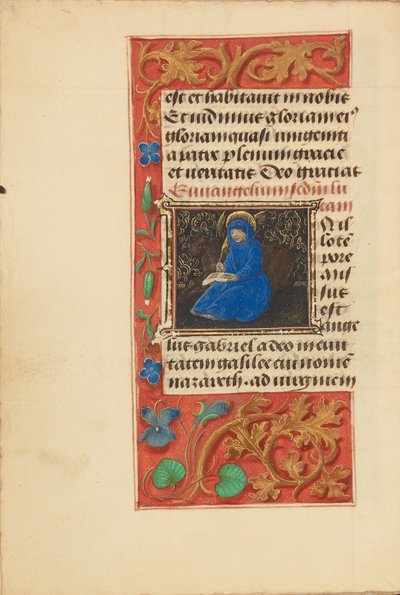 est et habitavit in nobis
Et vidimus gloriam ei9
gloriam quasi unigeniti
a patre plenum gracie
et veritatis Deo gratias
Euvangelium scdm lu
cam
N il
lo tēpore
ans
sus
est
ange
lus gabriel a deo in civi
tatem galilee cui nomē
nazareth. ad virginem